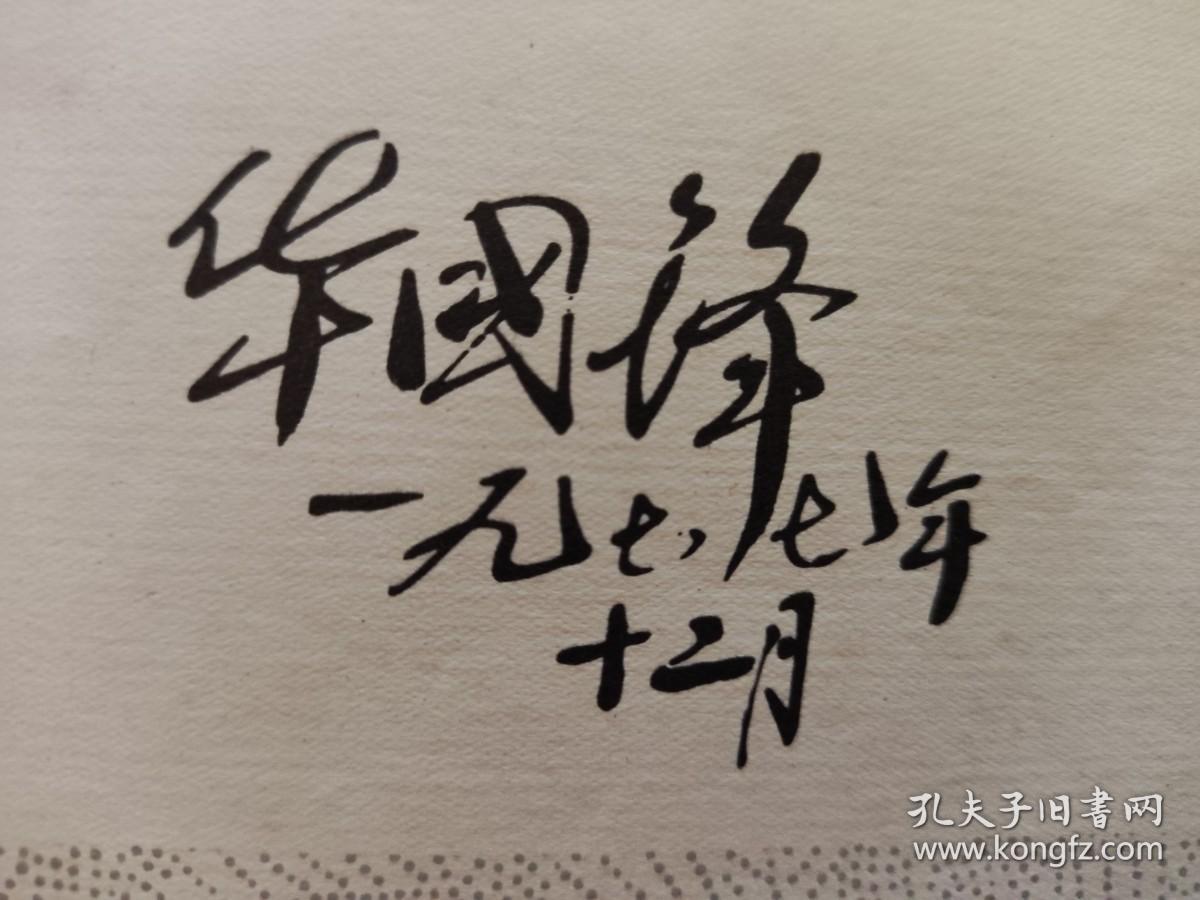 华國锋
一九七七年
十二月
孔夫子旧書网
www.kongfz.com